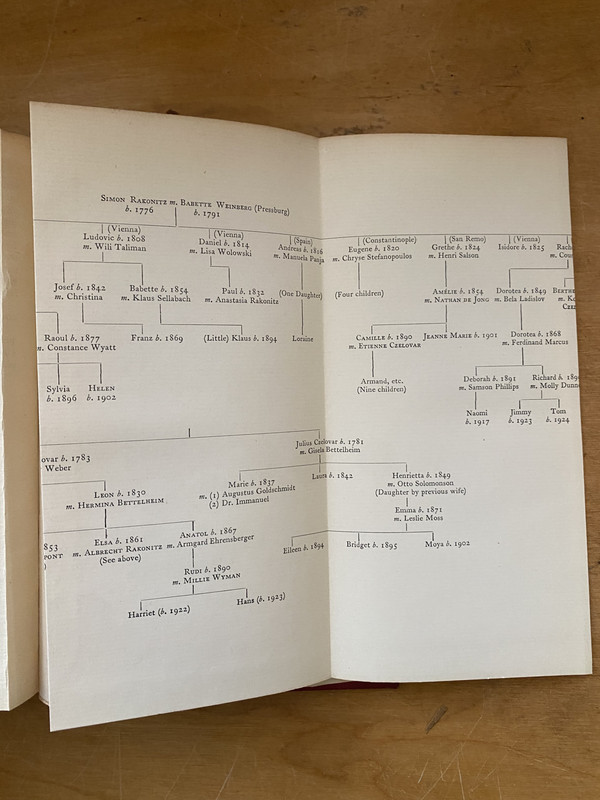 SIMON RAKONITZ m. BABETTE WEINBERG (Pressburg)
b. 1776 b. 1791
(Vienna) (Vienna) (Spain) (Constantinople) (San Remo) (Vienna)
Ludovic b. 1808 Daniel b. 1814 Andreas b. 1816 Eugene b. 1820 Grethe b. 1824 Isidore b. 1825 Rach
m. Wili Taliman m. Lisa Wolowski m. Manuela Panja m. Chryse Stefanopoulos m. Henri Salson m. Cous
Josef b. 1842 Babette b. 1854 Paul b. 1832 (One Daughter) (Four children) AMÉLIE b. 1854 Dorotea b. 1849 BERTHE
m. Christina m. Klaus Sellabach m. Anastasia Rakonitz m. NATHAN DE JONG m. Bela Ladislov m. K
CZEL
Raoul b. 1877 Franz b. 1869 (Little) Klaus b. 1894 Loraine CAMILLE b. 1890 JEANNE MARIE b. 1901 Dorotea b. 1868
m. Constance Wyatt m. ETIENNE CZELOVAR m. Ferdinand Marcus
Sylvia HELEN Armand, etc. Deborah b. 1891 Richard b. 189
b. 1896 b. 1902 (Nine children) m. Samson Phillips m. Molly Dunn
Naomi Jimmy Tom
b. 1917 b. 1923 b. 1924
ovar b. 1783 Julius Czelovar b. 1781
Weber m. Gisela Bettelheim
LEON b. 1830 Marie b. 1837 Laura b. 1842 Henrietta b. 1849
m. HERMINA BETTELHEIM m. (1) Augustus Goldschmidt m. Otto Solomonson
(2) Dr. Immanuel (Daughter by previous wife)
853 ELSA b. 1861 ANATOL b. 1867 Emma b. 1871
PONT m. ALBRECHT RAKONITZ m. Armgard Ehrensberger m. Leslie Moss
) (See above)
Eileen b. 1894 Bridget b. 1895 Moya b. 1902
RUDI b. 1890
m. MILLIE WYMAN
Harriet (b. 1922) Hans (b. 1923)